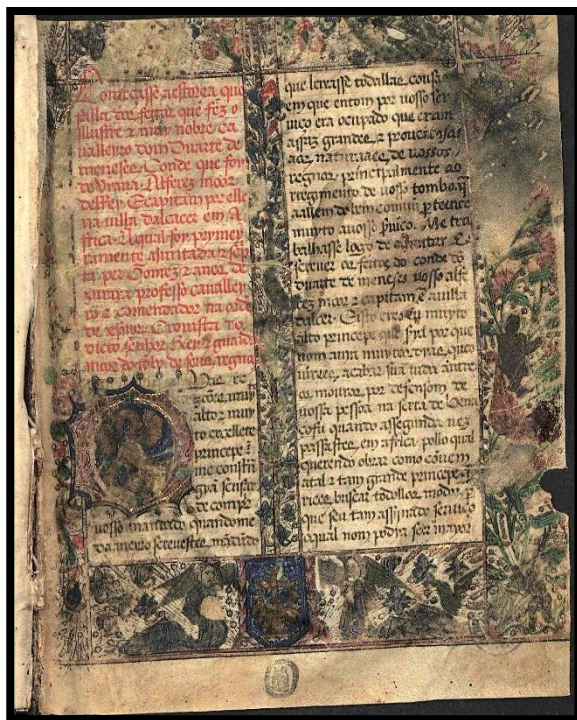 Comecasse a estorea que
falla dos feitos que fez o
illustre z muy nobre ca
valleyro dom Duarte de
meneses Conde que foy
de viana Alferez moor
delRey E capitam por elle
na villa dalcacer em A
frica A qual foy primey
ramente ajuntada z scp
ta per Gomez eanes de
zurara professo cavalley
ro z comendador na ordē
de xpūs Cronista do
dicto senhor Rey z guarda
moor do tombo de seus regnos
muy
altos muy
to excellēte
princepe z
me constrā
gya sensa
de comprir
vosso mandado quando me
da aveiro screvestes mādādo
que leixasse todallas cousas
em que entom por vosso ser
viço era ocupado que eram
assaz grandes z proveitosas
aos naturaaes de vossos
regnos principalmente ao
regimento de vosso tombo q̄
aallem do bem comũ perteēce
muyto a vosso sviço Me tra
balhasse logo de ajuntar E
screver os feitos do conde dō
duarte de meneses vosso alfe
rez moor z capitam e a villa
dalcacer E isto creo eu muyto
alto princepe que sya por que
nom avya muytos dias que o
vireees acabar sua vida antre
os mouros por defensom de
vossa pessoa na serra de bena
cofu quando a segunda vez
passastes em africa pollo qual
querendo obrar como cōvem
a tal z tam grande princepe
buscar todollos modos p
que seu tam assynado serviço
o qual nom podya seer mayor